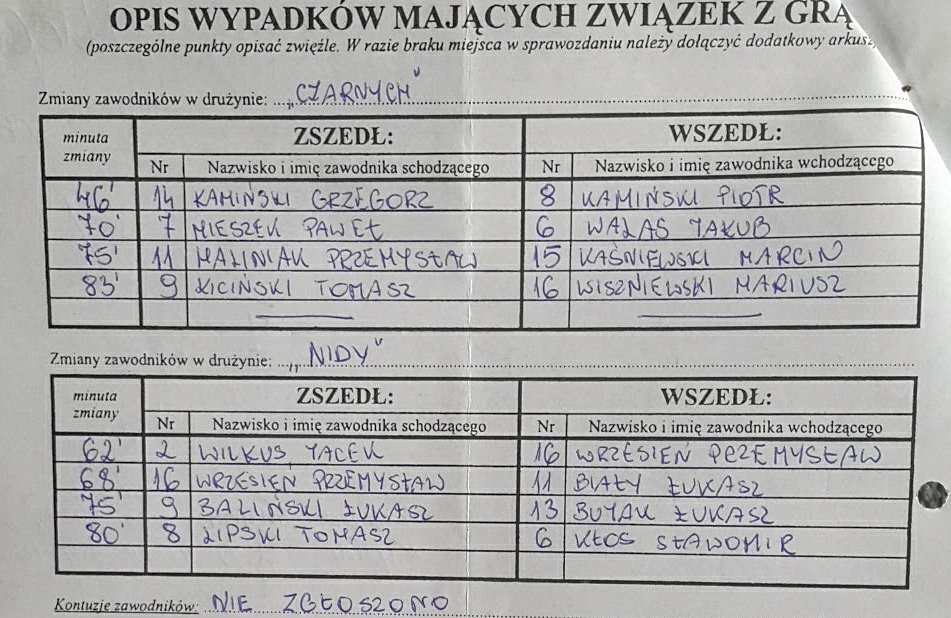 OPIS WYPADKÓW MAJĄCYCH ZWIĄZEK Z GRĄ
(poszczególne punkty opisać zwięźle. W razie braku miejsca w sprawozdaniu należy dołączyć dodatkowy arkusz
Zmiany zawodników w drużynie: „CZARNYCH"
minuta zmiany ZSZEDŁ: WSZEDŁ:
Nr Nazwisko i imię zawodnika schodzącego Nr Nazwisko i imię zawodnika wchodzącego
46' 14 KAMIŃSKI GRZEGORZ 8 KAMIŃSKI PIOTR
70' 7 MIESZEK PAWEŁ 6 WALAS JAKUB
75' 11 MALINIAK PRZEMYSŁAW 15 KAŚNIEWSKI MARCIN
83' 9 ŁICIŃSKI TOMASZ 16 WISZNIEWSKI MARIUSZ
Zmiany zawodników w drużynie: „NIDY"
minuta zmiany ZSZEDŁ: WSZEDŁ:
Nr Nazwisko i imię zawodnika schodzącego Nr Nazwisko i imię zawodnika wchodzącego
62' 2 WILKUS JACEK 16 WRZESIEŃ PRZEMYSŁAW
68' 16 WRZESIEŃ PRZEMYSŁAW 11 BIAŁY ŁUKASZ
75' 9 BALIŃSKI ŁUKASZ 13 BUJAK ŁUKASZ
80' 8 LIPSKI TOMASZ 6 KŁOS SŁAWOMIR
Kontuzje zawodników: NIE ZGŁOSZONO